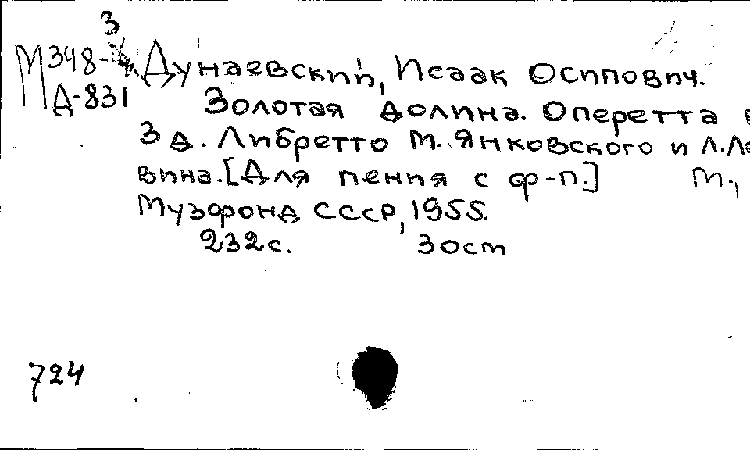 3
М348-
Д-831
Дунаевский, Исаак Осипович.
Золотая долина. Оперетта в
3 д. Либретто М. Янковского и Л. Ле
вина. [Для пения с ф-п.] М.,
Музфонд СССР, 1955.
232с. 30см
724